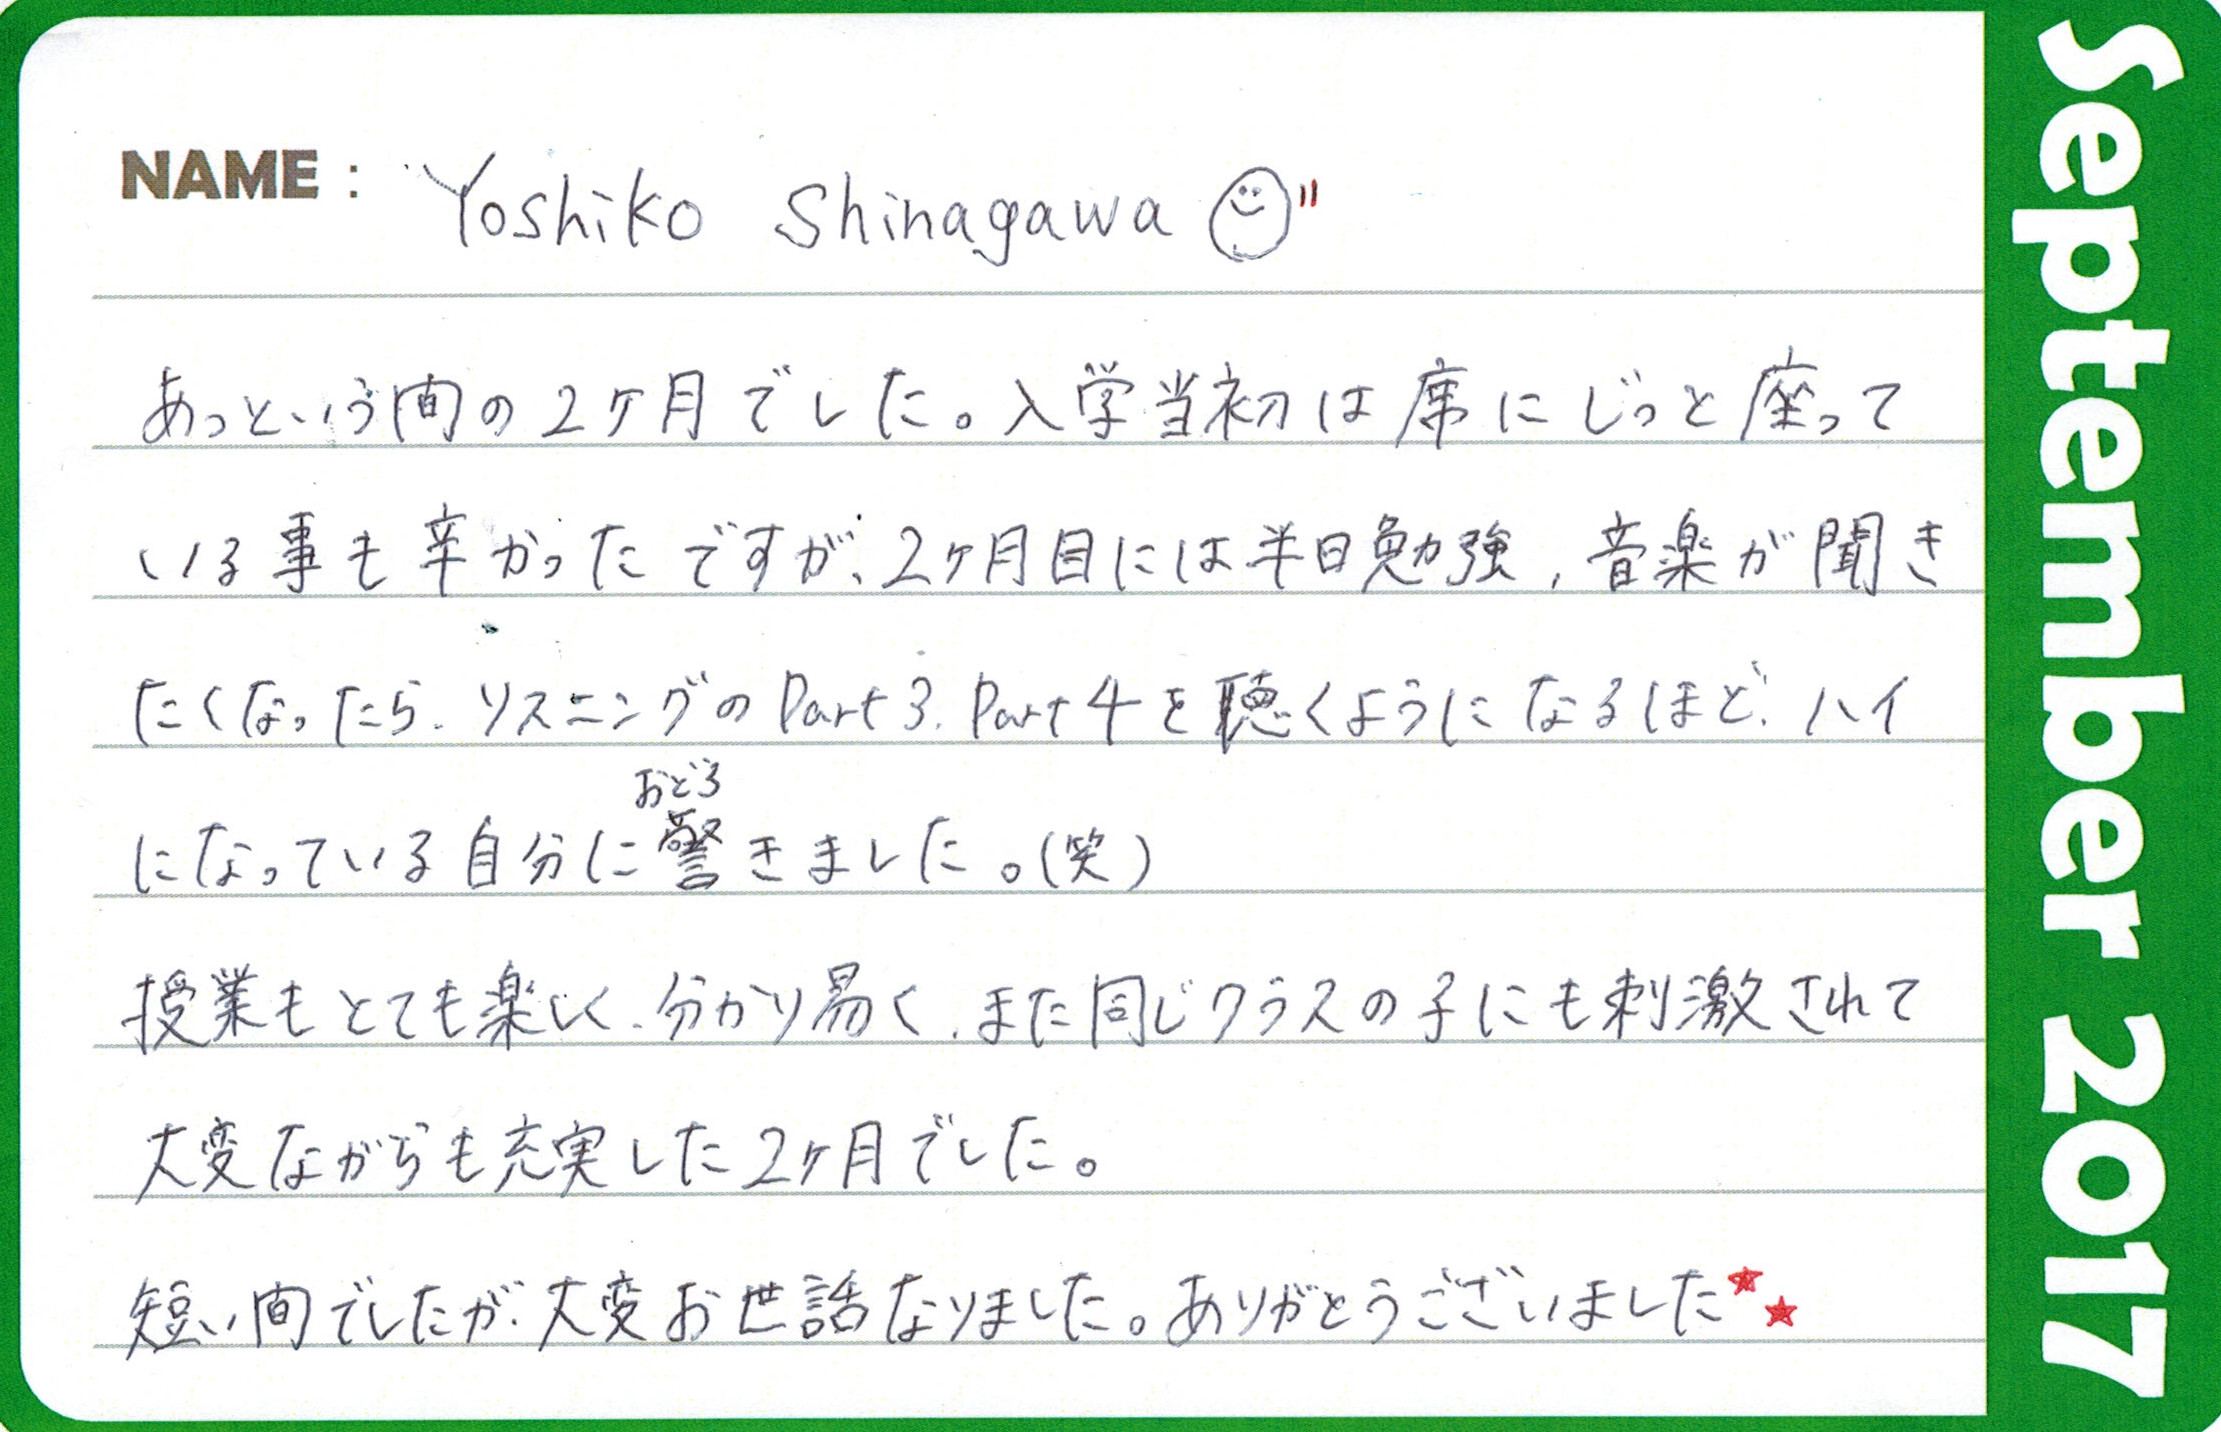 NAME : Yoshiko Shinagawa
あっという間の2ヶ月でした。入学当初は席にじっと座って
いる事も辛かったですが、2ヶ月目には半日勉強，音楽が聞き
たくなったら、リスニングのPart3、Part4を聴くようになるほど、ハイ
おどろ
になっている自分に警きました。(笑)
授業もとても楽しく、分かり易く、また同じクラスの子にも刺激されて
大変ながらも充実した2ヶ月でした。
短い間でしたが、大変お世話なりました。ありがとうございました★★
September 2017